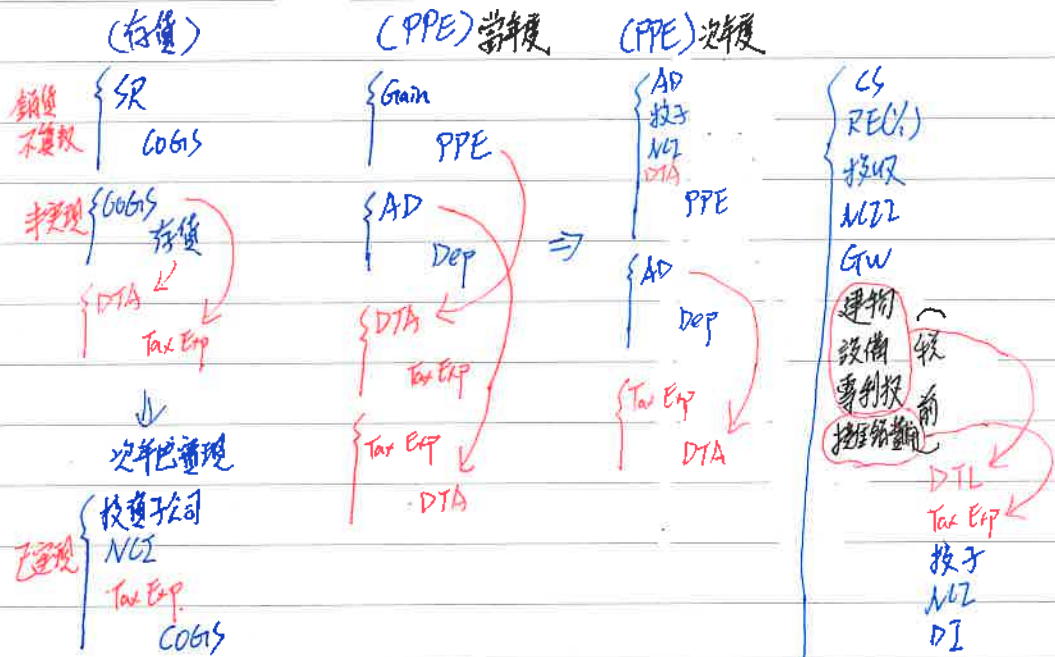 (存貨)
SR
COGS
銷貨
COGS
存貨
DTA
Tax Exp
次年已實現
已實現
投資子公司
NCI
Tax Exp.
COGS
(PPE)當年度
Gain
PPE
AD
Dep
DTA
Tax Exp
Tax Exp
DTA
⇒
(PPE)次年度
AD
投子
NCI
DTA
PPE
AD
Dep
Tax Exp
DTA
CS
RE(1/1)
投收
NCII
GW
建物
設備
專利權
(稅前)
DTL
Tax Exp
投子
NCI
DI